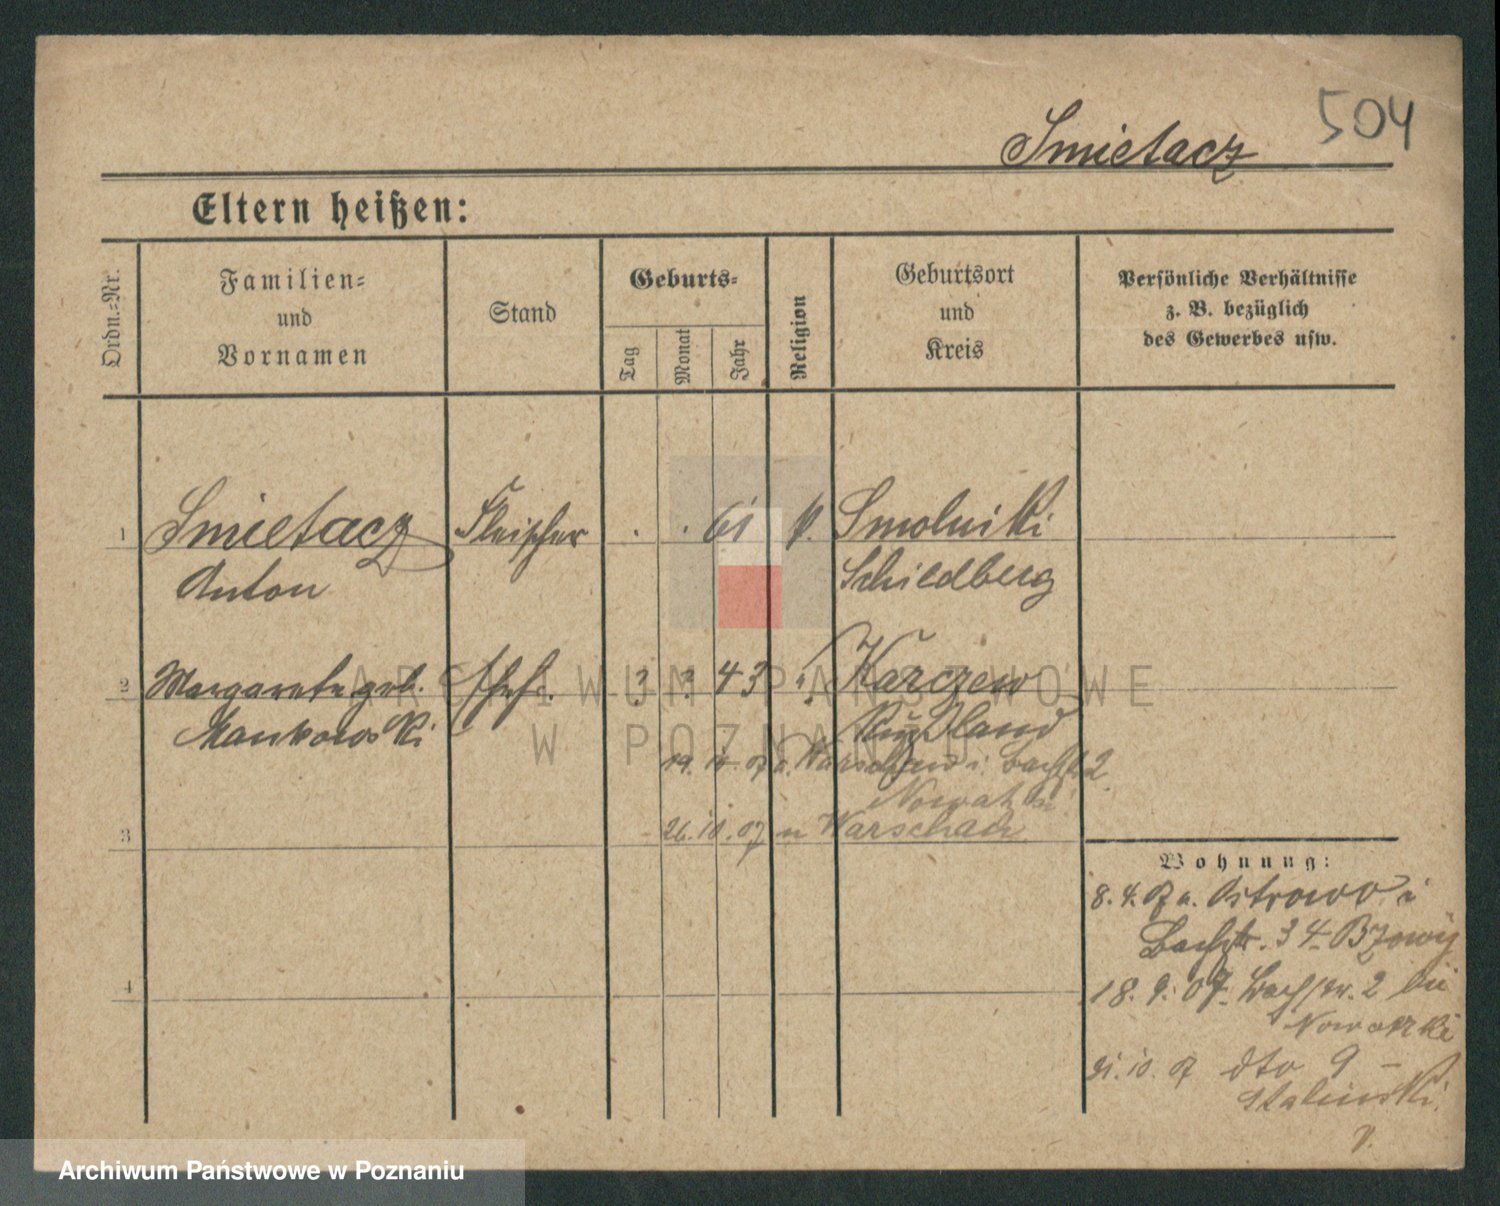 504
Smietacz
Eltern heißen:
Ordn.=Nr.
Familien=
und
Vornamen
Stand
Geburts=
Tag
Monat
Jahr
Religion
Geburtsort
und
Kreis
Persönliche Verhältnisse
z. B. bezüglich
des Gewerbes usw.
1 Smietacz Fleischer . . 61 k. Smolniki
Anton Schildberg
2 Margarete geb. Ehefr. ? ? 43 " Karczew
Mankowski Rußland
19. 07 a. Warschau i. Bachstr. 2
3 26.10.07 n Warschau
Wohnung:
8. 4. 07 a. Ostrowo i
Bachstr. 34
18. 9. 07. Bachstr. 2 bei
Nowatzki
4
10. 07 dto 9 -
Stalinski.
ARCHIWUM PAŃSTWOWE
W POZNANIU
Archiwum Państwowe w Poznaniu